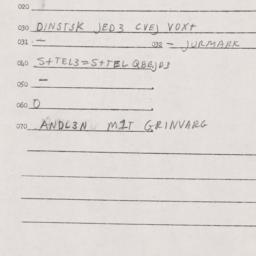 020
030 DINSTSK JED3 CVEJ VOX+
031 — 032 — JURMARK
040 S+TEL3=S+TEL
050 —
060 O
070 ANDL3N M1T GRINVARG